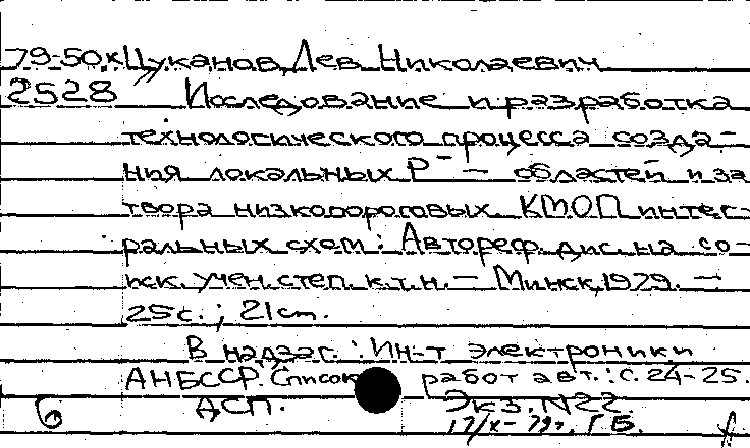 79-50к Цуканов, Лев Николаевич
2528 Исследование и разработка
технологического процесса созда-
ния локальных Р⁻ – областей и за
твора низкопороговых КМОП интег-
ральных схем : Автореф. дис. на со-
иск. учен. степ. к.т.н. – Минск, 1979. –
25с. ; 21см.
В надзаг. : Ин-т электроники
АНБССР. Список работ авт. : с. 24-25.
6 ДСП. Экз. N22
17/X-79г. Г Б.